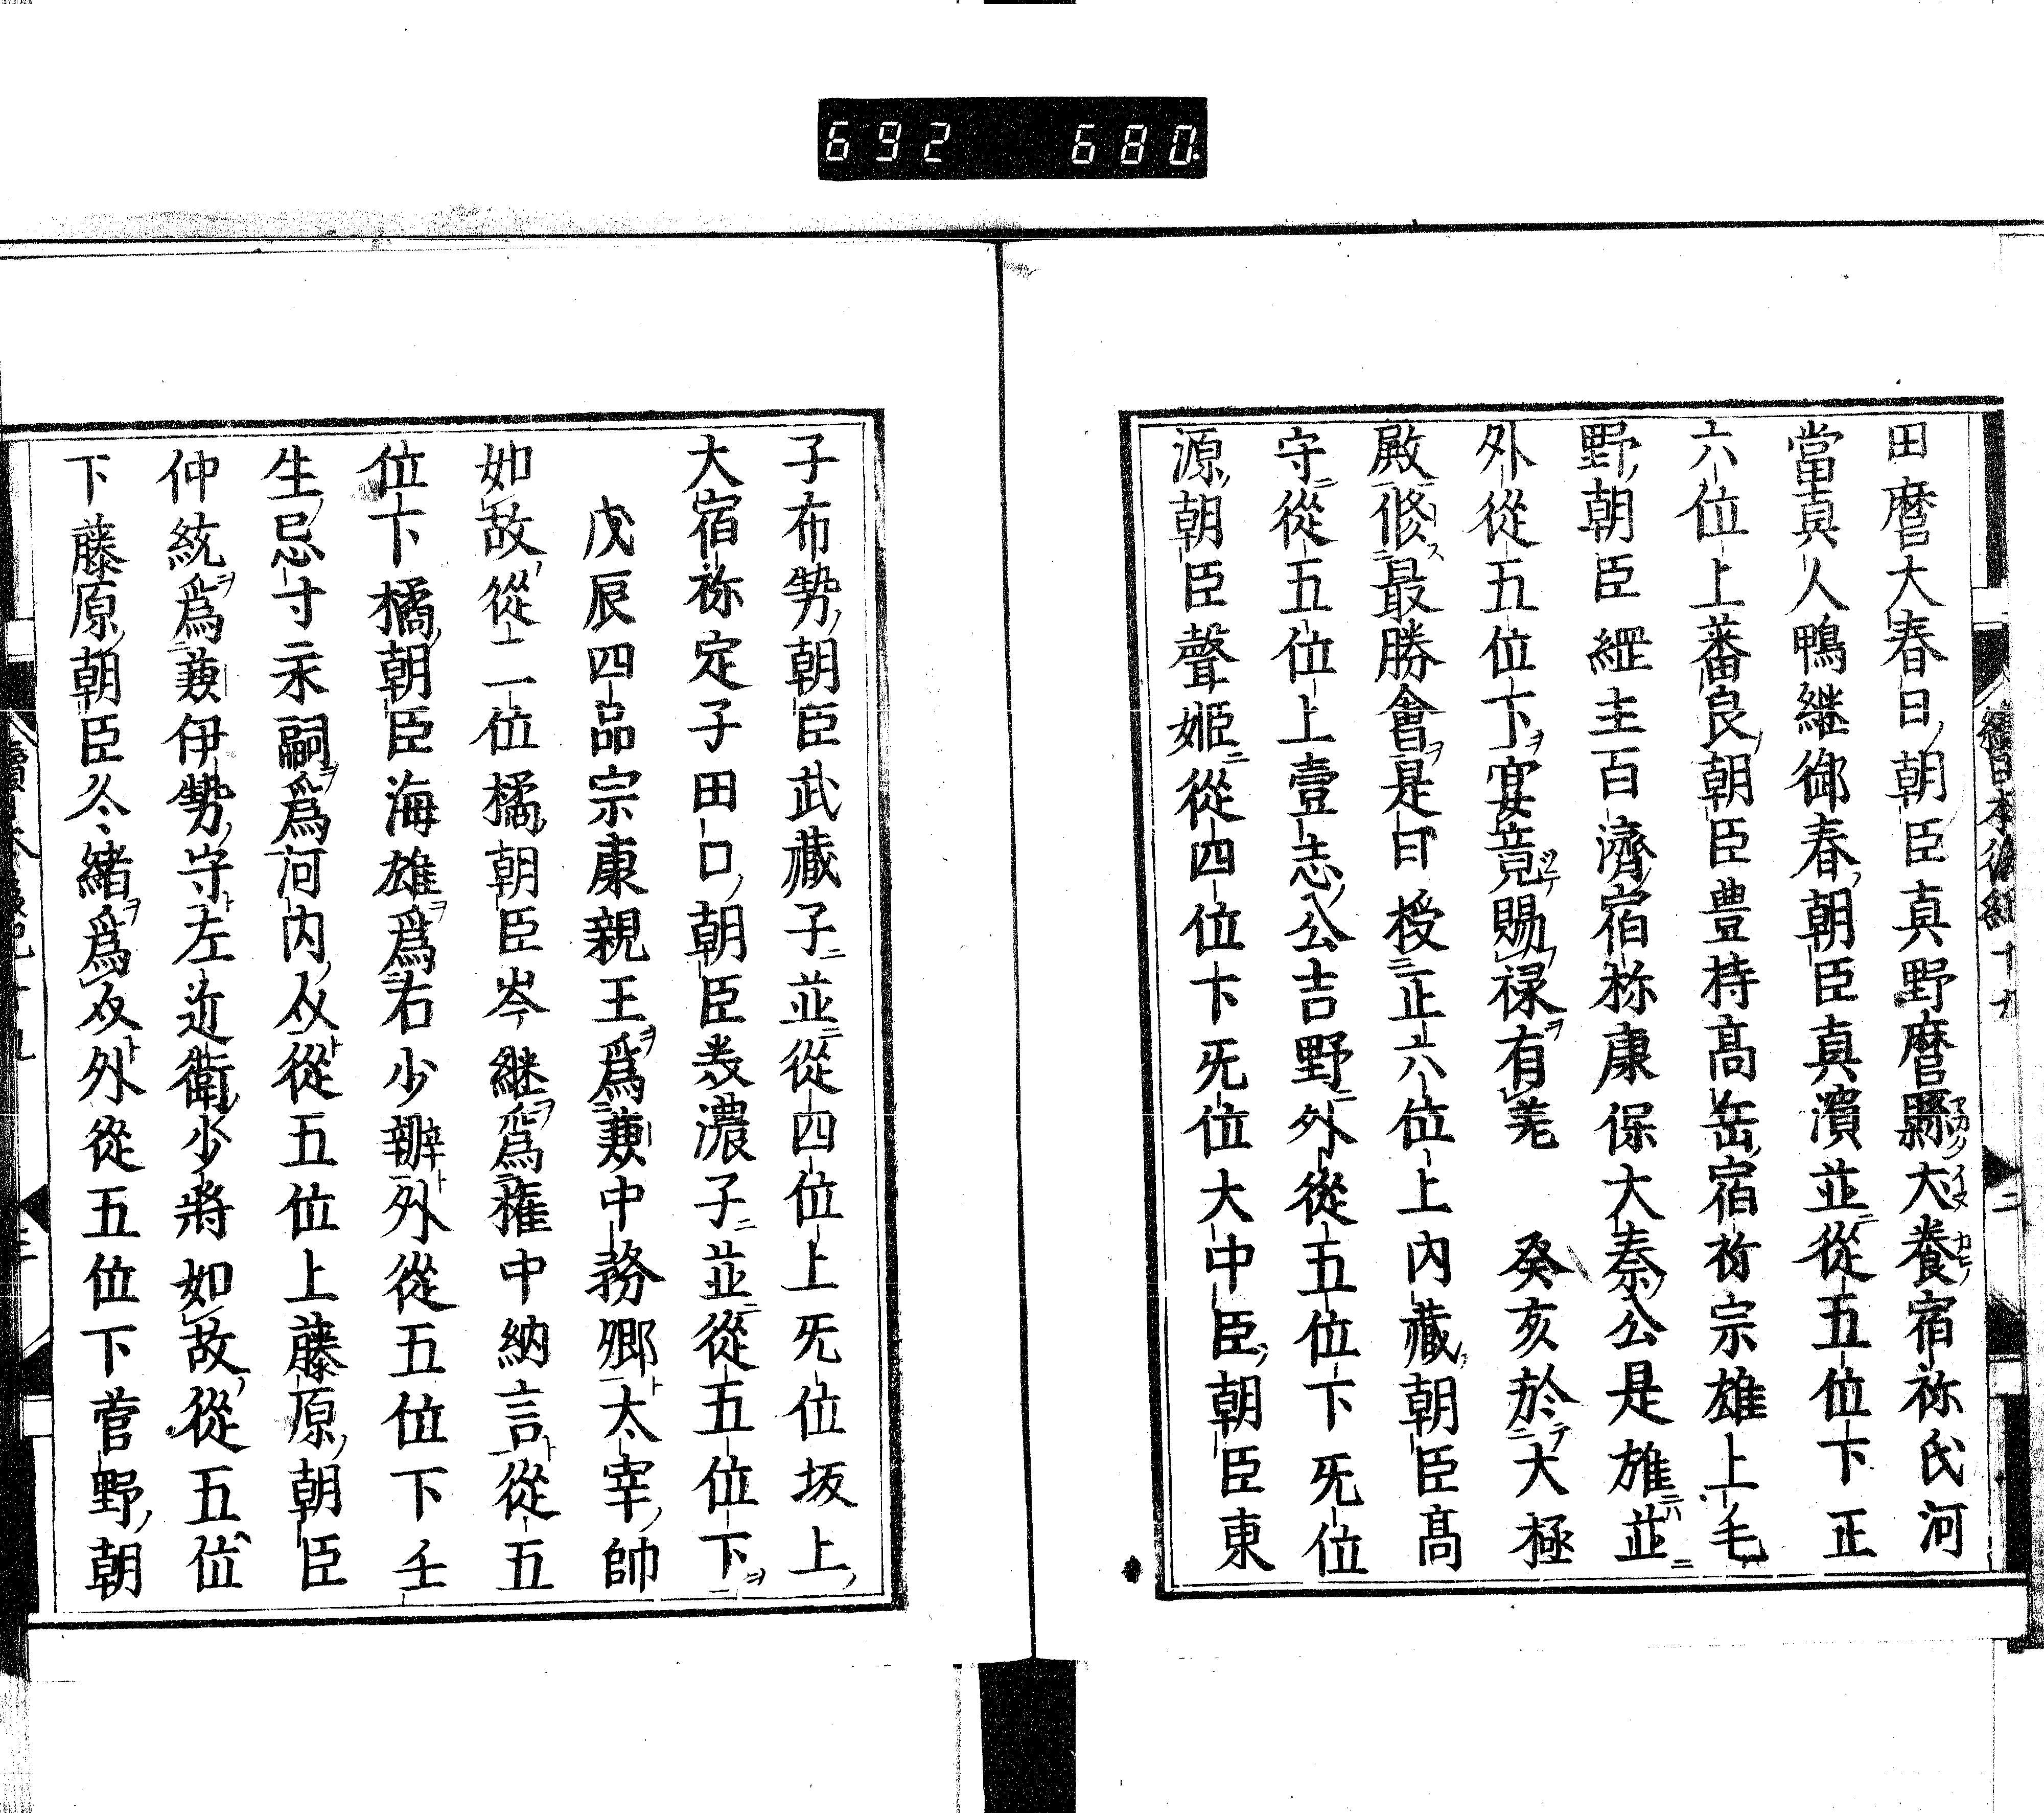 692 680.
田麿大春日朝臣真野麿縣大養宿祢氏河
當真人鴨継御春朝臣真濱並從五位下正
六位上蕃良朝臣豊持高岳宿祢宗雄上毛
野朝臣綑主百濟宿祢康保大秦公是雄並
外從五位下宴竟賜禄有羌 癸亥於大極
殿修最勝會是曰授正六位上内藏朝臣高
守從五位上壹志公吉野外從五位下旡位
源朝臣聲姫從四位下旡位大中臣朝臣東
子布勢朝臣武藏子並從四位上旡位坂上
大宿祢定子田口朝臣美濃子並從五位下
戊辰四品宗康親王爲兼中務卿太宰帥
如故從二位橘朝臣岑継爲權中納言從五
位下橘朝臣海雄爲右少辨外從五位下壬
生忌寸永嗣爲河内从從五位上藤原朝臣
仲統爲兼伊勢守左近衛少將如故從五位
下藤原朝臣冬緒爲从外從五位下菅野朝